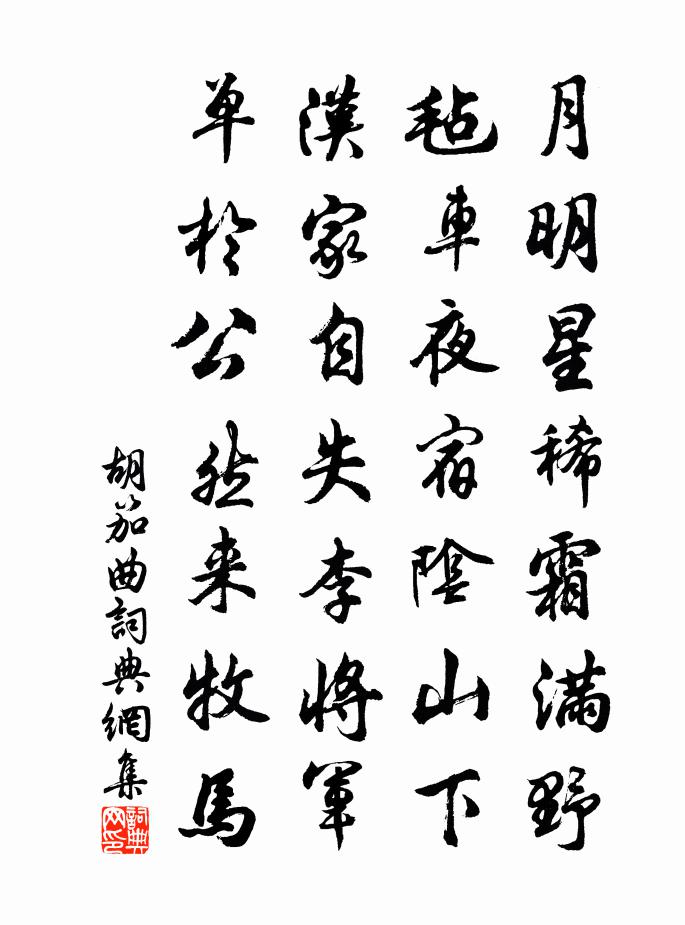 月明星稀霜滿野
氊車夜宿陰山下
漢家自失李將軍
单於公然来牧馬
胡笳曲詞典網集
詞典网印